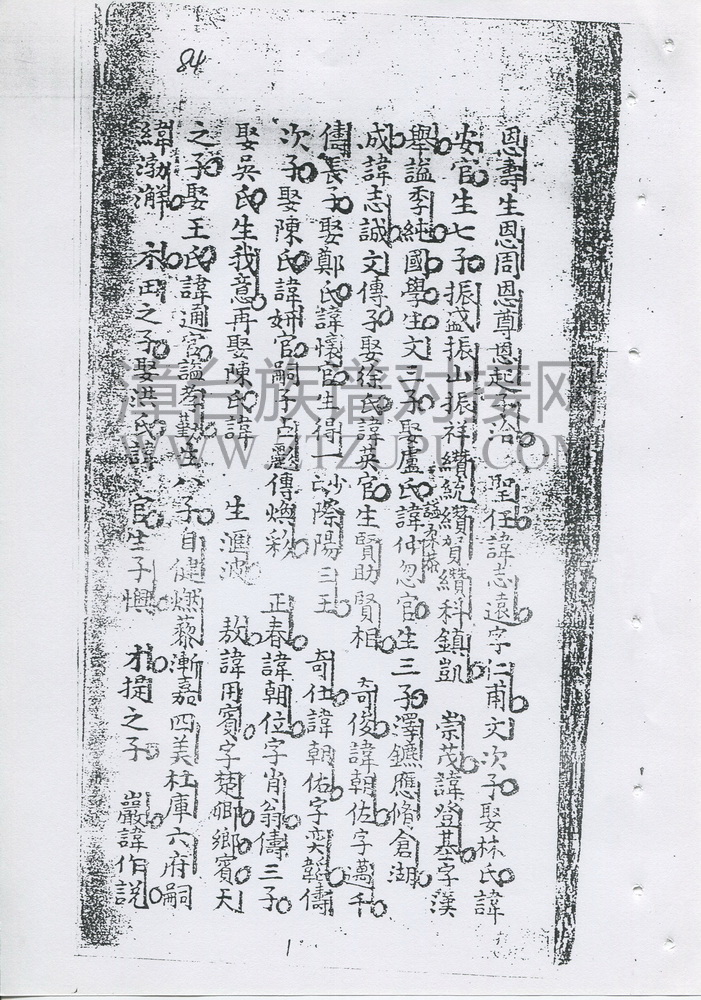 84
恩壽生恩周恩尊恩起子治 聖任諱志遠字仁甫文次子娶林氏諱
安官生七子振盛振山振祥纘統纘賀纘緒科鎮凱 崇茂諱登基字漢
舉謚季純國學生文三子娶盧氏諱 忽官生三子澤鑣應脩倉湖
成諱志誠文傳子娶徐氏諱英官生賢助賢相 奇俊諱朝佐字萬千
儔長子娶鄭氏諱懷官生得一 際陽三王 奇仕諱朝佑字奕韓儔
次子娶陳氏諱妍官嗣子 傳煥彩 正春諱朝位字肖翁儔三子
娶吳氏生我意再娶陳氏諱 生滙 敖諱用賓字楚卿鄉賓天
之子娶王氏諱通官謚孝勤生八子自健燃藜漸嘉四美杜庫六府嗣
緯渤澥 田之子娶洪氏諱 官生子 才提之子 巖諱作說
漳台族谱对接网
WWW.ZTZUPU.COM
1